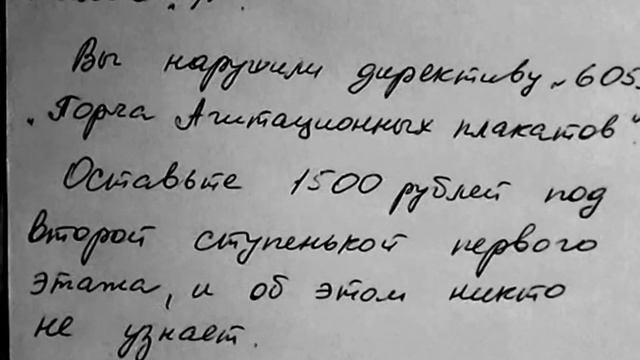 Вы нарушили директиву „605
„Порча Агитационных плакатов“
Оставьте 1500 рублей под
второй ступенькой первого
этажа, и об этом никто
не узнает.